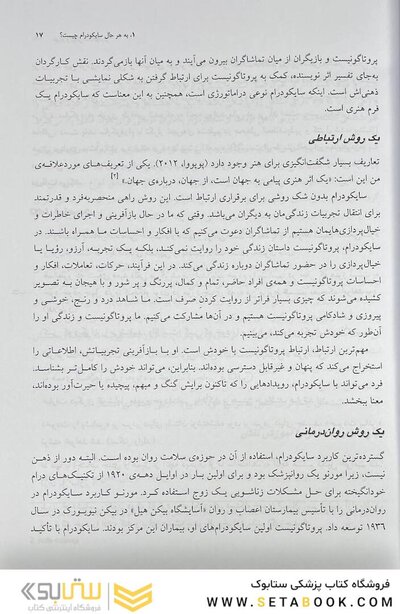 ۱. به هر حال سایکودرام چیست؟ ۱۷
پروتاگونیست و بازیگران از میان تماشاگران بیرون می‌آیند و به میان آنها بازمی‌گردند. نقش کارگردان
به‌جای تفسیر اثر نویسنده، کمک به پروتاگونیست برای ارتباط گرفتن به شکلی نمایشی با تجربیات
ذهنی‌اش است. اینکه سایکودرام نوعی دراماتورژی است، همچنین به این معناست که سایکودرام یک
فرم هنری است.
یک روش ارتباطی
تعاریف بسیار شگفت‌انگیزی برای هنر وجود دارد (پوپووا، ۲۰۱۲). یکی از تعریف‌های موردعلاقه‌ی
من این است: «یک اثر هنری پیامی به جهان است، از جهان، درباره‌ی جهان.»[۲]
سایکودرام بدون شک روشی برای برقراری ارتباط است. این روش راهی منحصربه‌فرد و قدرتمند
برای انتقال تجربیات زندگی‌مان به دیگران می‌باشد. وقتی که ما در حال بازآفرینی و اجرای خاطرات و
خیال‌پردازی‌هایمان هستیم از تماشاگران دعوت می‌کنیم که با افکار و احساسات ما همراه باشند. در
سایکودرام، پروتاگونیست داستان زندگی خود را روایت نمی‌کند، بلکه یک تجربه، آرزو، رؤیا یا
خیال‌پردازی را در حضور تماشاگران دوباره زندگی می‌کند. در این فرآیند، حرکات، تعاملات، افکار و
احساسات پروتاگونیست و همه‌ی افراد حاضر، تمام و کمال، پررنگ و پر شور و با هیجان به تصویر
کشیده می‌شوند که چیزی بسیار فراتر از روایت کردن صرف است. ما شاهد درد و رنج، خوشی و
پیروزی و شادکامی پروتاگونیست هستیم و در آن‌ها مشارکت می‌کنیم. ما پروتاگونیست و زندگی او را
آن‌طور که خودش تجربه می‌کند، می‌بینیم.
مهم‌ترین ارتباط، ارتباط پروتاگونیست با خودش است. او با بازآفرینی تجربیاتش، اطلاعاتی را
استخراج می‌کند که پنهان و غیرقابل دسترسی بوده‌اند. بنابراین، می‌تواند خودش را کامل‌تر بشناسد.
فرد می‌تواند با سایکودرام، رویدادهایی را که تاکنون برایش گنگ و مبهم، پیچیده یا حیرت‌آور بوده‌اند،
معنا ببخشد.
یک روش روان‌درمانی
گسترده‌ترین کاربرد سایکودرام، استفاده از آن در حوزه‌ی سلامت روان بوده است. البته دور از ذهن
نیست، زیرا مورنو یک روانپزشک بود و برای اولین بار در اوایل دهه‌ی ۱۹۲۰ از تکنیک‌های درام
خودانگیخته برای حل مشکلات زناشویی یک زوج استفاده کرد. مورنو کاربرد سایکودرام در
روان‌درمانی را با تأسیس بیمارستان اعصاب و روان «آسایشگاه بیکن هیل» در بیکن نیویورک در سال
۱۹۳۶ توسعه داد. پروتاگونیست اولین سایکودرام‌های او، بیماران این مرکز بودند. سایکودرام با تأکید
فروشگاه کتاب پزشکی ستابوک
WWW.SETABOOK.COM
ستابوک
فروشگاه اینترنتی کتاب